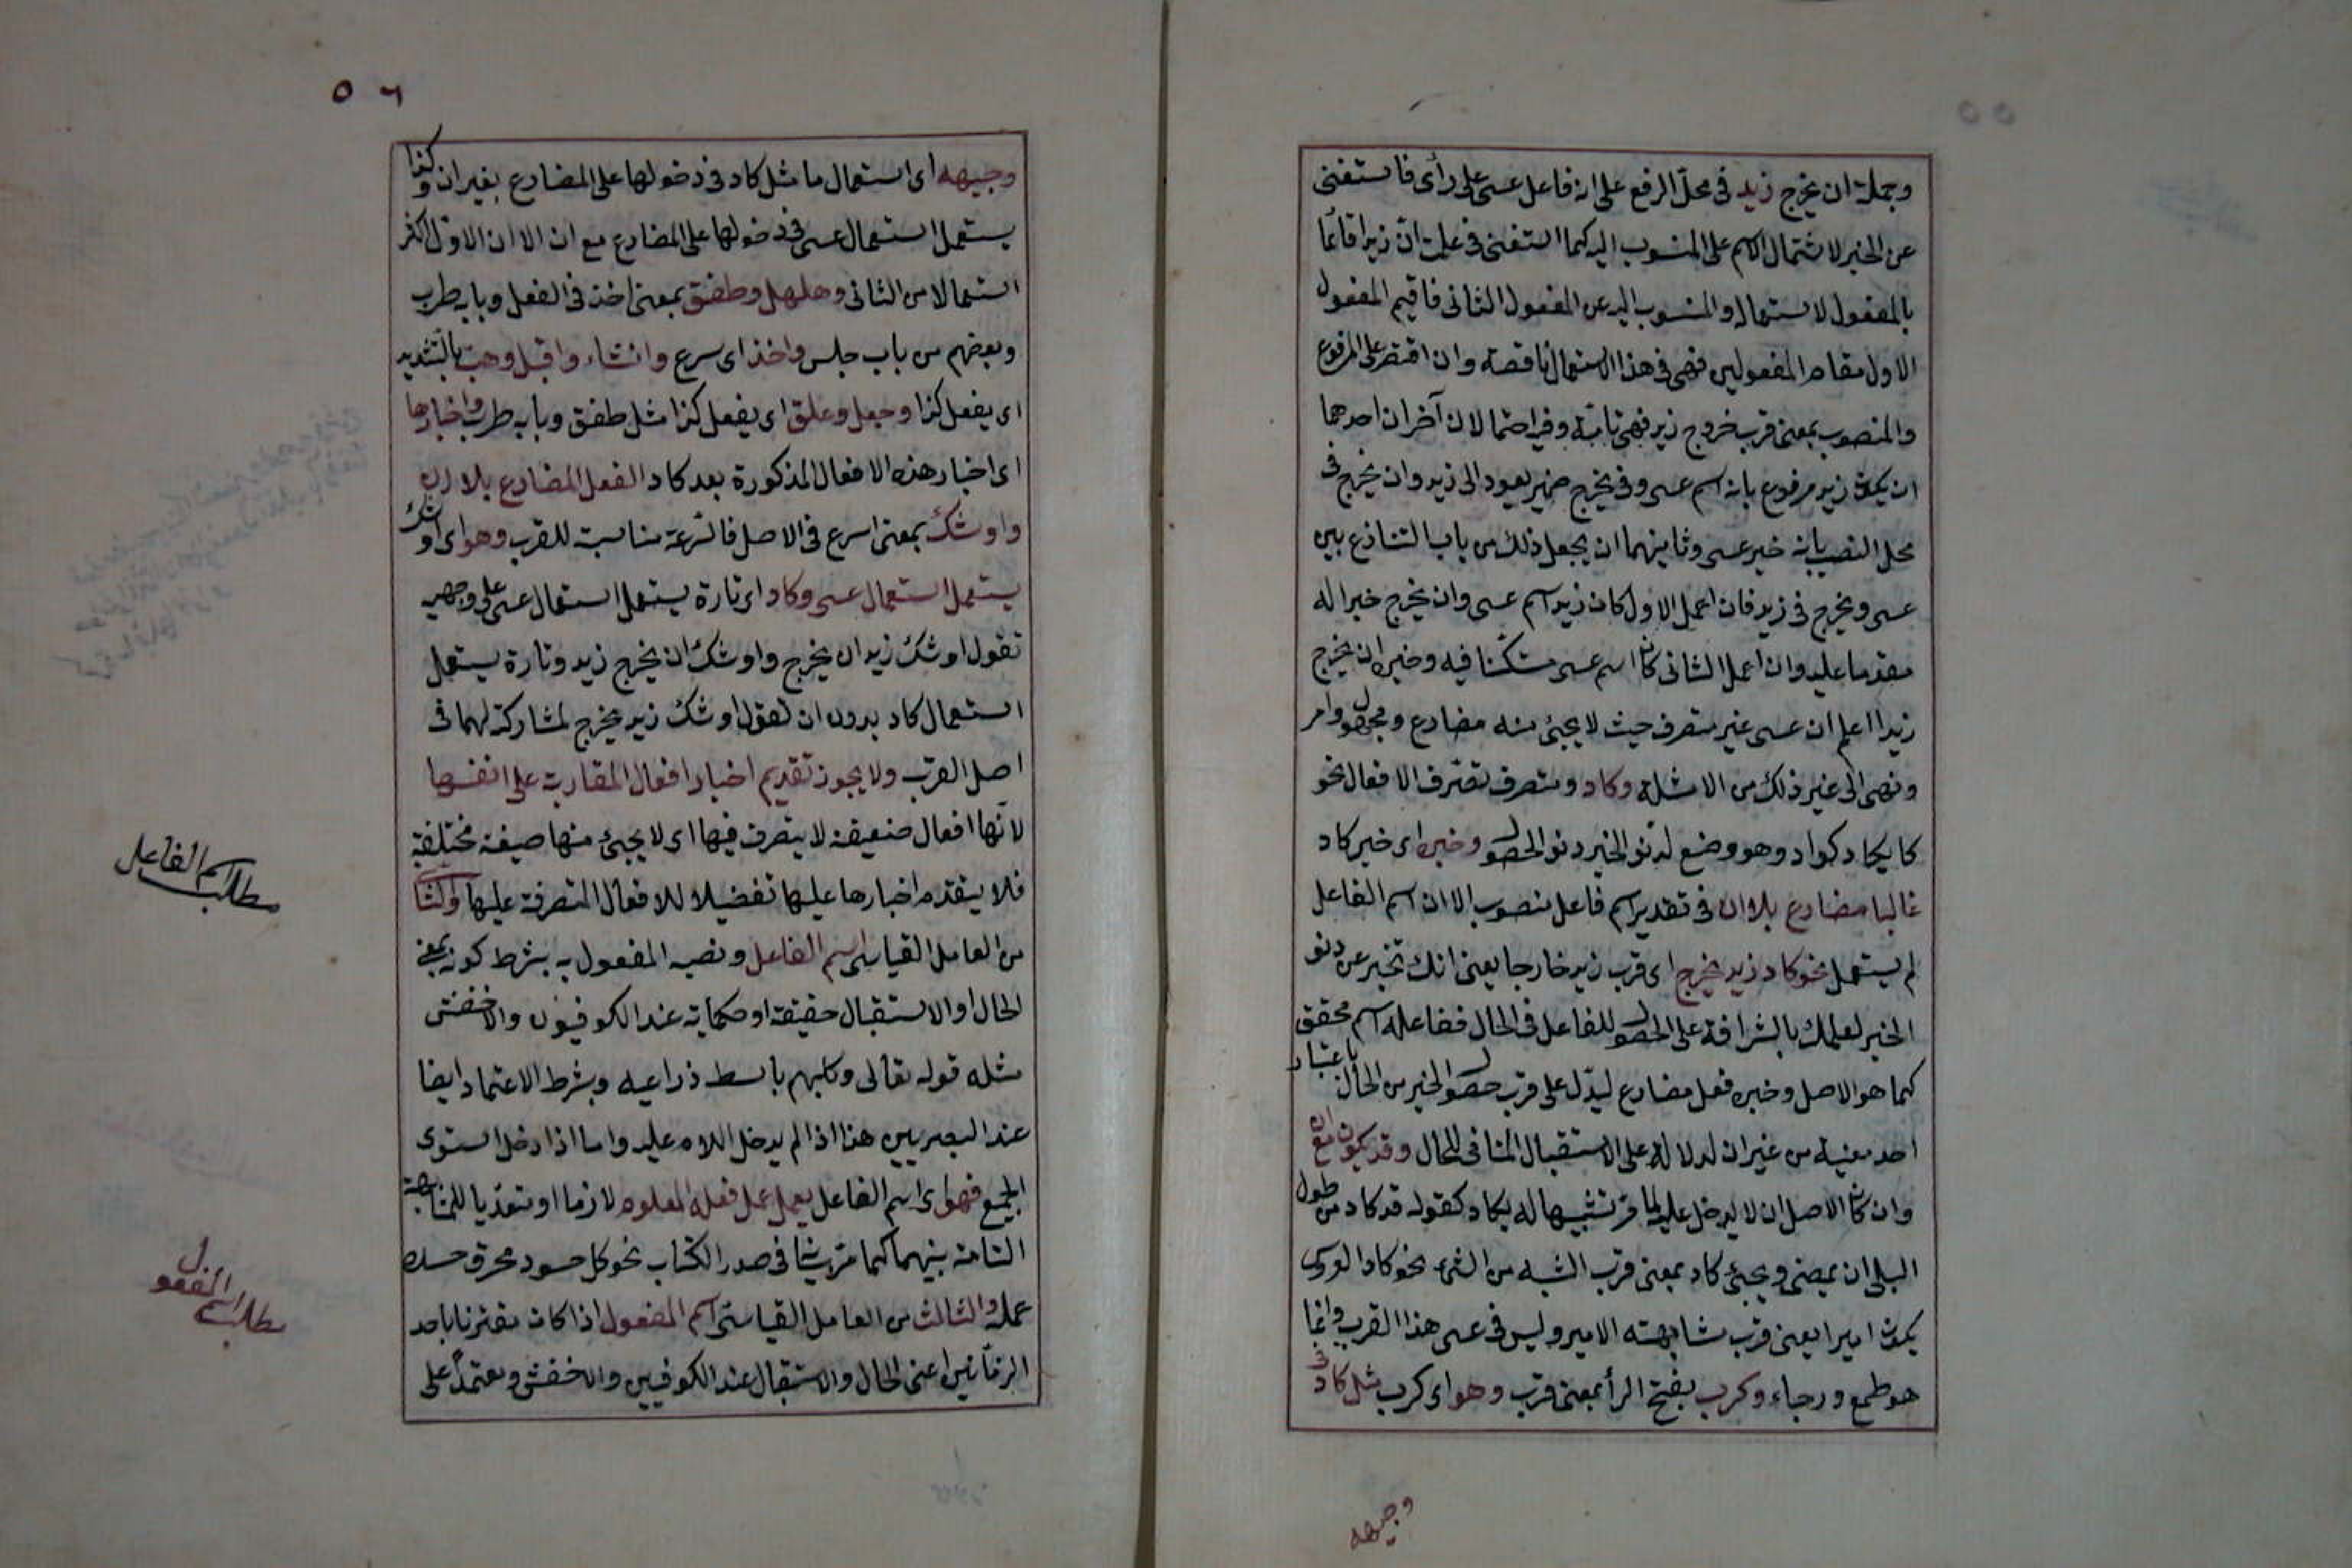 وجملة ان يخرج زيد في محل الرفع على انه فاعل عسى على رأى فاستغنى
عن الخبر لاشتمال الاسم على المنسوب اليه كما استغنى في علمت ان زيدا قائما
بالمفعول لاستماله والمنسوب اليه عن المفعول الثاني فاقيم المفعول
الاول مقام المفعولين فهى في هذا الاستعمال ناقصة وان اقتصر على المرفوع
والمنصوب بمعنى قرب خروج زيد فهى تامة وفيه احتمالان آخران احدهما
ان يكون زيد مرفوع بانه اسم عسى وفي يخرج ضمير يعود الى زيد وان يخرج في
محل النصب بانه خبر عسى وثانيهما ان يجعل ذلك من باب التنازع بين
عسى ويخرج في زيد فان اعمل الاول كان زيد اسم عسى وان يخرج خبرا له
مقدما عليه وان اعمل الثاني كان اسم عسى مستكنا فيه وخبره ان يخرج
زيدا اعلم ان عسى غير متصرف حيث لا يجئ منه مضارع ومجهول وامر
ونهى الى غير ذلك من الامثلة وكاد ومتصرف تصرف الافعال نحو
كاد يكاد كوادا وهو وضع لدنو الخبر دنو الحصول وخبره اى خبر كاد
غالبا مضارع بلا ان في تقدير اسم فاعل منصوب الا ان اسم الفاعل
لم يستعمل نحو كاد زيد يخرج اى قرب زيد خارجا يعنى انك تخبر عن دنو
الخبر لعلمك بالشرافة على الحصول للفاعل في الحال ففاعله اسم محقق
كما هو الاصل وخبره فعل مضارع ليدل على قرب حصول الخبر من الحال باعتبار
احد معنييه من غير ان لدلالة على الاستقبال المنافى للحال وقد يكون مع ان
وان كان الاصل ان لا يدخل عليه لما مر تشبيها له بكاد كقوله قد كاد من طول
البلى ان يمصى ويجئ كاد بمعنى قرب الشبه من الشئ نحو كاد العروس
يكون اميرا يعنى قرب مشابهته الامير وليس في عسى هذا القرب وانما
هو طمع ورجاء وكرب بفتح الرأ بمعنى قرب وهو اى كرب مثل كاد في
وجيهه
٥٦
وجيهه اى استعمال ما مثل كاد في دخولها على المضارع بغير ان وكذا
يستعمل استعمال عسى في دخولها على المضارع مع ان الا ان الاول اكثر
استعمالا من الثاني وهلهل وطفق بمعنى اخذ في الفعل وبابه طرب
وبعضهم من باب جلس واخذ اى سرع وانشاء واقبل وهب بالتشديد
اى يفعل كذا وجعل وعلق اى يفعل كذا مثل طفق وبابه طرب واخبارها
اى اخبار هذه الافعال المذكورة بعد كاد الفعل المضارع بلا ان
واوشك بمعنى اسرع في الاصل فالسرعة مناسبة للقرب وهو اى اوشك
يستعمل استعمال عسى وكاد اى تارة يستعمل استعمال عسى على وجهين
تقول اوشك زيد ان يخرج واوشك ان يخرج زيد وتارة يستعمل
استعمال كاد بدون ان تقول اوشك زيد يخرج لمشاركته لهما في
اصل القرب ولا يجوز تقديم اخبار افعال المقاربة على انفسها
لانها افعال ضعيفة لا يتصرف فيها اى لا يجئ منها صيغة مختلفة
فلا يتقدم اخبارها عليها تفضيلا للافعال المتصرفة عليها والثانى
من العامل القياسى اسم الفاعل ونصبه المفعول به بشرط كونه بمعنى
الحال او الاستقبال حقيقة او حكاية عند الكوفيون والاخفش
مثله قوله تعالى وكلبهم باسط ذراعيه وبشرط الاعتماد ايضا
عند البصريين هذا اذا لم يدخل اللام عليه واما اذا دخل استوى
الجميع فهو اى اسم الفاعل يعمل عمل فعله المعلوم لازما او متعديا للمشابهة
التامة بينهما كما مر بيانها في صدر الكتاب نحو كل حسود محرق حسده
عمله والثالث من العامل القياسى اسم المفعول اذا كان مقترنا باحد
الزمانين اعنى الحال والاستقبال عند الكوفيين والاخفش ومعتمدا على
مطلب اسم الفاعل
مطلب اسم المفعول